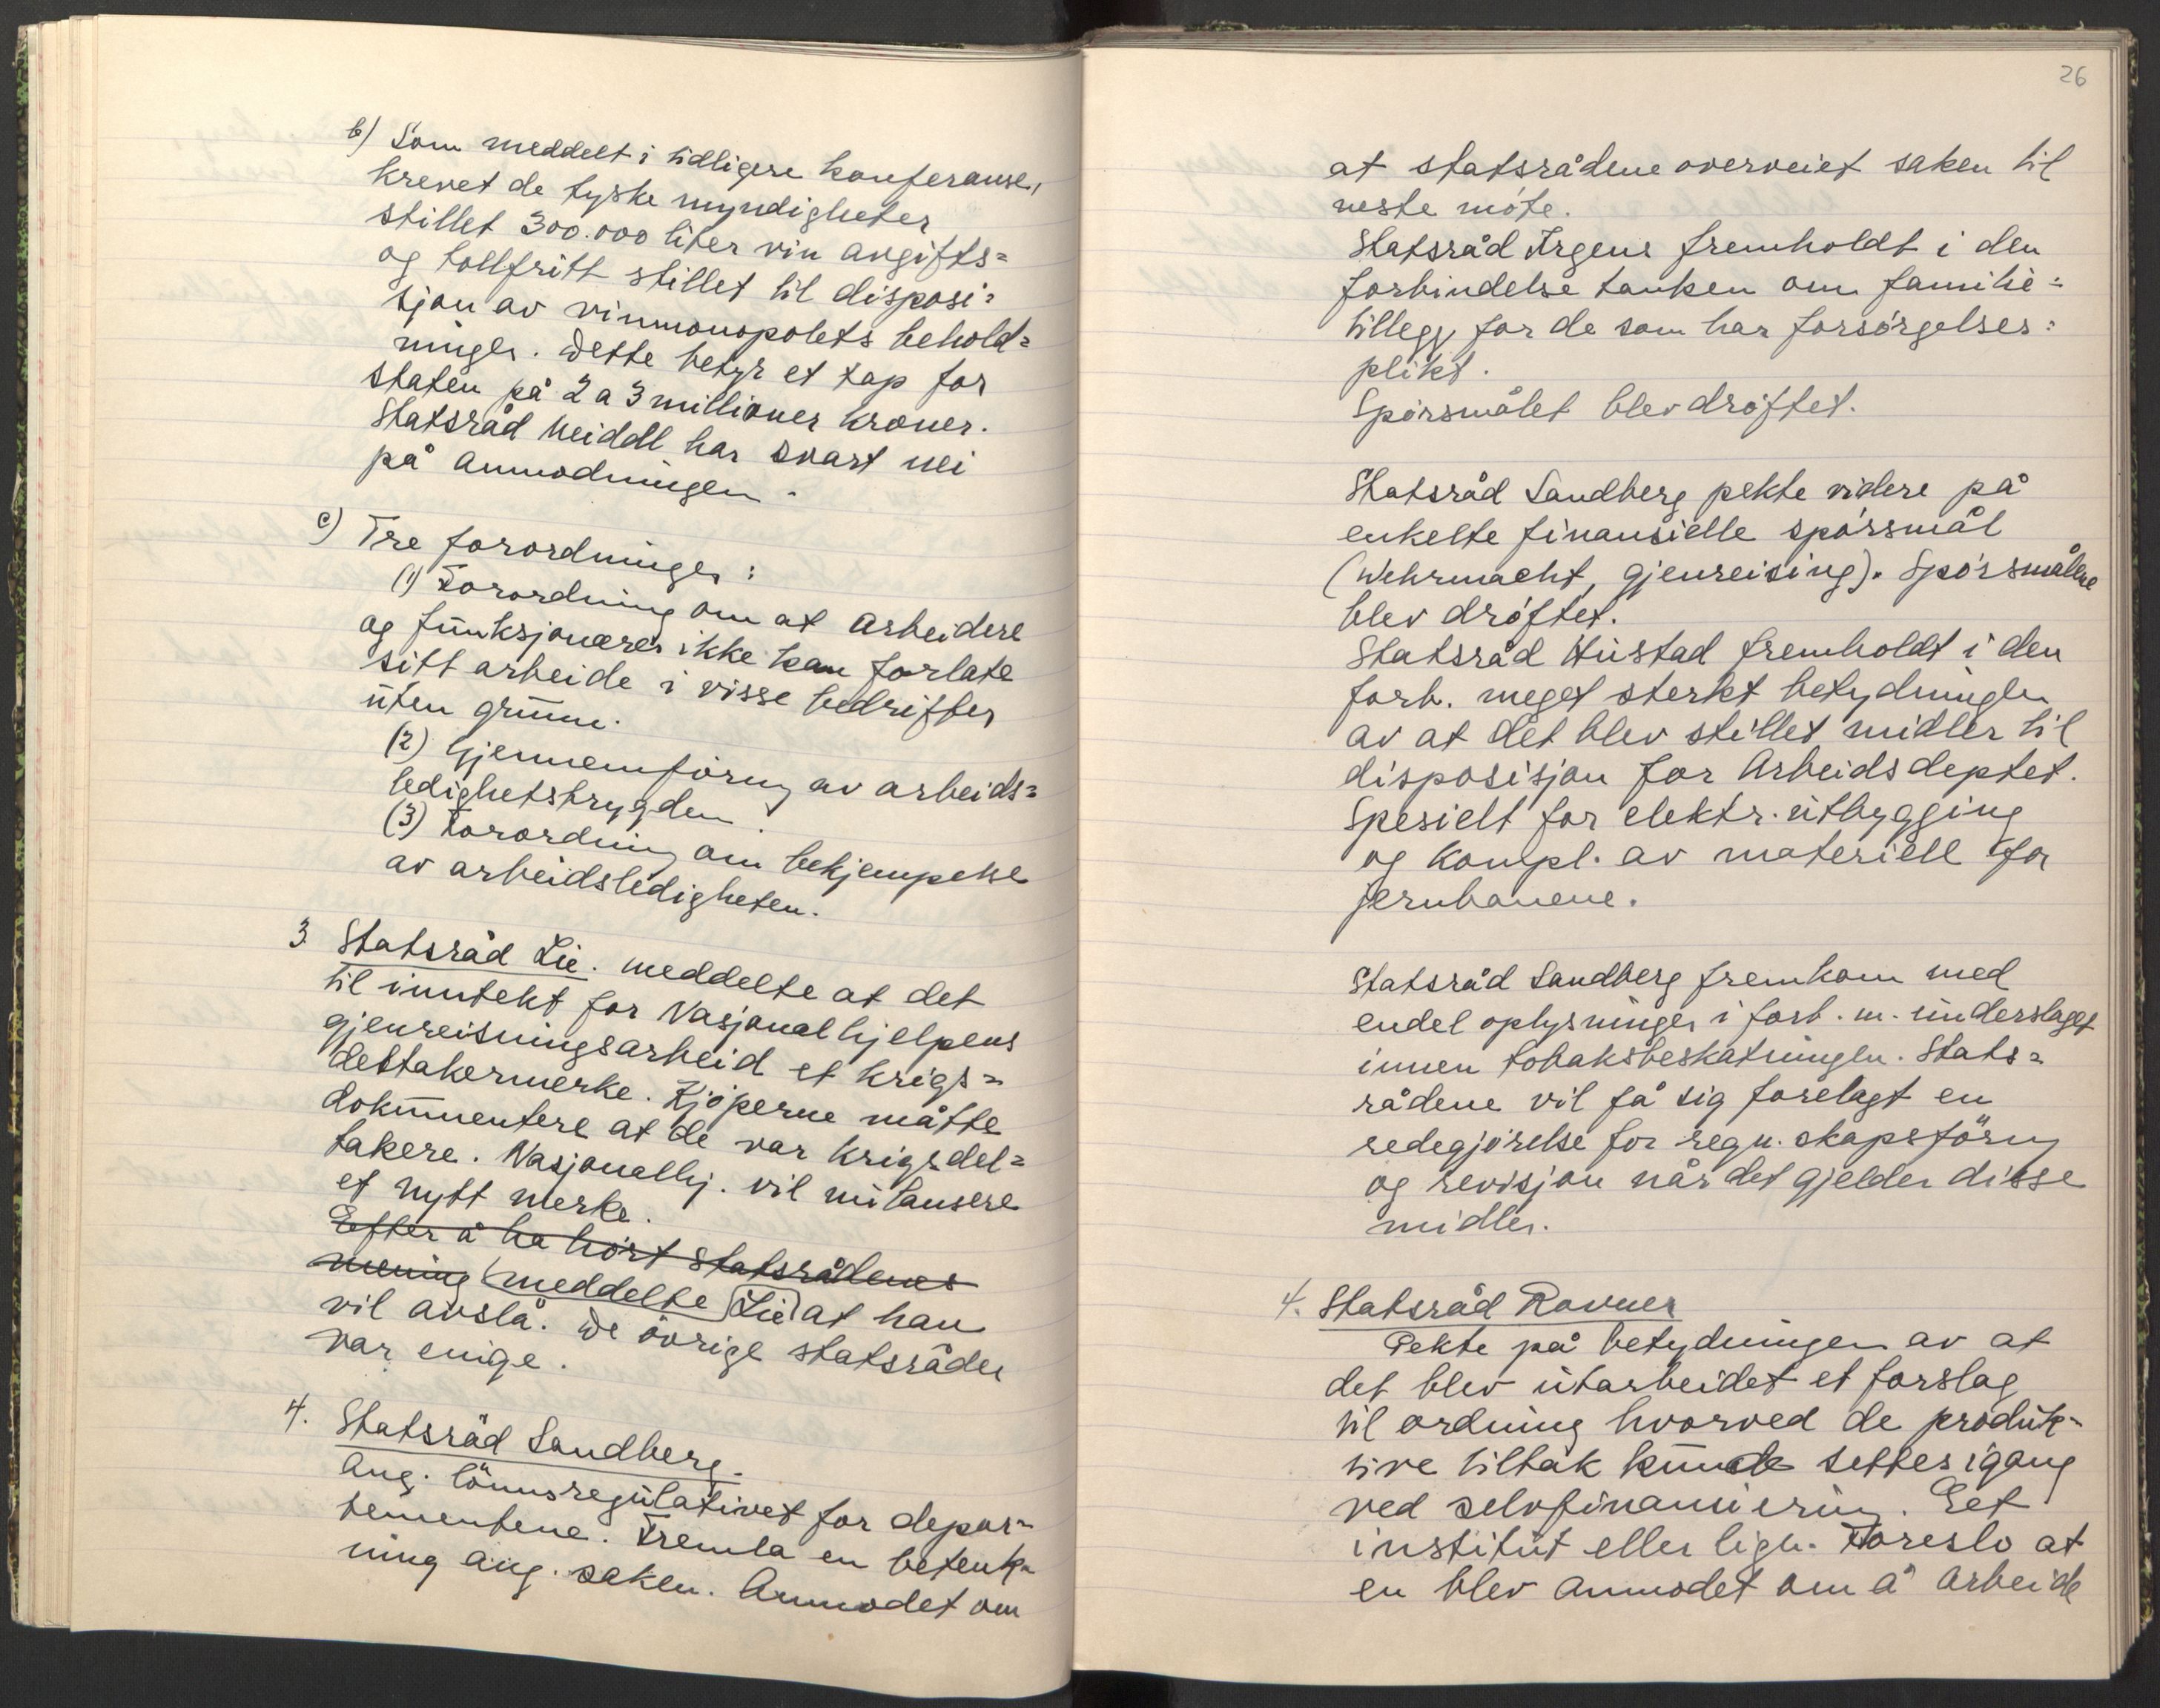 b) Som meddelt i tidligere konferanse,
krevet de tyske myndigheter
stillet 300.000 liter vin avgifts=
og tollfritt stillet til disposi=
sjon av vinmonopolets behold=
ninger. Dette betyr et tap for
staten på 2 a 3 millioner kroner.
Statsråd Meidell har svart nei
på anmodningen.
c) Tre forordninger:
(1) Forordning om at arbeidere
og funksjonærer ikke kan forlate
sitt arbeide i visse bedrifter
uten grunn.
(2) Gjennemføring av arbeids=
ledighetstrygden.
(3) Forordning om bekjempelse
av arbeidsledigheten.
3. Statsråd Lie. meddelte at det
til inntekt for Nasjonalhjelpens
gjenreisningsarbeid et krigs=
deltakermerke. Kjøperne måtte
dokumentere at de var krigsdel=
takere. Nasjonalhj. vil nu lansere
et nytt merke.
Efter å ha hørt statsrådenes
mening meddelte Lie at han
vil avslå. De øvrige statsråder
var enige.
4. Statsråd Sandberg.
Ang. lønnsregulativet for depar=
tementene. Fremla en betenk=
ning ang. saken. Anmodet om
26
at statsrådene overveiet saken til
neste møte.
Statsråd Irgens fremholdt i den
forbindelse tanken om familie=
tillegg for de som har forsørgelses=
plikt.
Spørsmålet blev drøftet.
Statsråd Sandberg pekte videre på
enkelte finansielle spørsmål
(Wehrmacht, gjenreising). Spørsmålene
blev drøftet.
Statsråd Hustad fremholdt i den
forb. meget sterkt betydningen
av at det blev stillet midler til
disposisjon for Arbeidsdeptet.
Spesielt for elektr. utbygging
og kompl. av materiell for
jernbanene.
Statsråd Sandberg fremkom med
endel oplysninger i forb. m. underslaget
innen tobaksbeskatningen. Stats=
rådene vil få sig forelagt en
redegjørelse for regn.skapsføring
og revisjon når det gjelder disse
midler.
4. Statsråd Ravner
Pekte på betydningen av at
det blev utarbeidet et forslag
til ordning hvorved de produk-
tive tiltak kunde settes igang
ved selvfinansiering. Eet
institut eller lign. Foreslo at
en blev anmodet om å arbeide